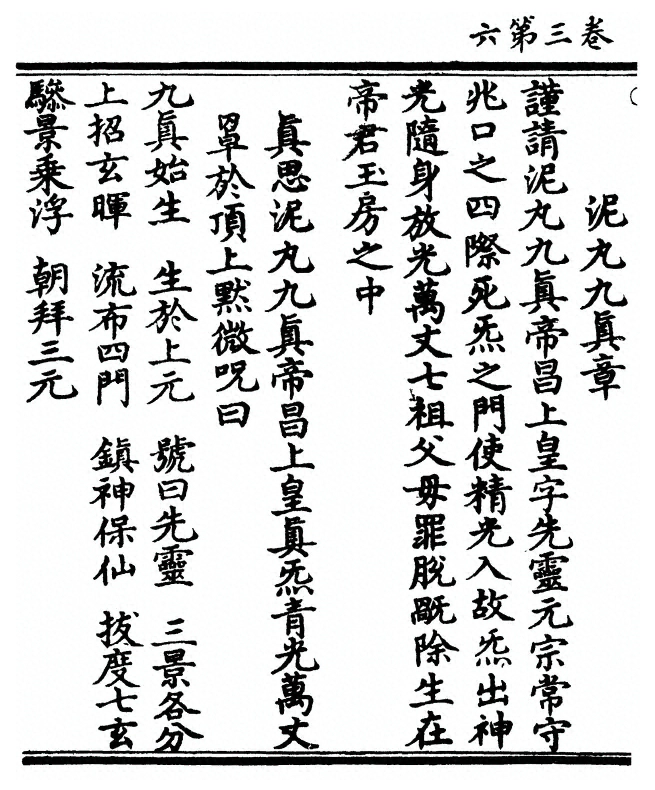 卷三第六
泥丸九眞章
謹請泥丸九眞帝昌上皇字先靈元宗常守
兆口之四際死炁之門使精光入故炁出神
光隨身放光萬丈七祖父母罪脫𣨼除生在
帝君玉房之中
眞思泥丸九眞帝昌上皇眞炁青光萬丈
罩於頂上默微呪曰
九眞始生　生於上元　號曰先靈　三景各分
上招玄暉　流布四門　鎮神保仙　拔度七玄
驂景乘浮　朝拜三元